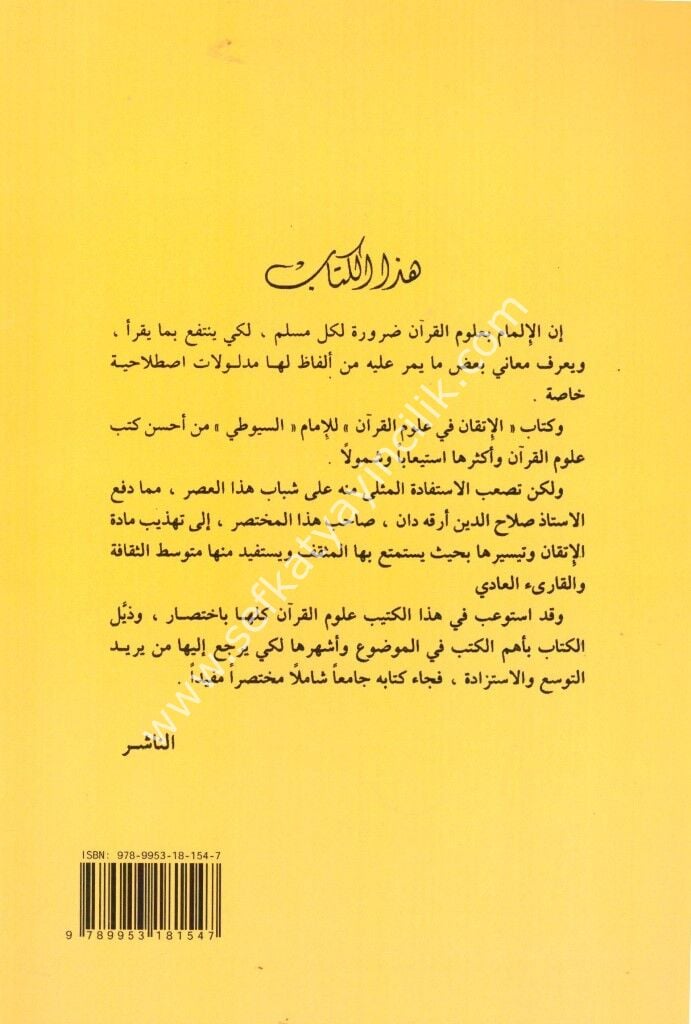 هذا الكتاب
إن الإلمام بعلوم القرآن ضرورة لكل مسلم ، لكي ينتفع بما يقرأ ،
ويعرف معاني بعض ما يمر عليه من ألفاظ لها مدلولات اصطلاحية
خاصة .
وكتاب « الإتقان في علوم القرآن » للإمام « السيوطي » من أحسن كتب
علوم القرآن وأكثرها استيعاباً وشمولاً .
ولكن تصعب الاستفادة المثلى منه على شباب هذا العصر ، مما دفع
الاستاذ صلاح الدين أرقه دان ، صاحب هذا المختصر ، إلى تهذيب مادة
الإتقان وتيسيرها بحيث يستمتع بها المثقف ويستفيد منها متوسط الثقافة
والقارىء العادي
وقد استوعب في هذا الكتيب علوم القرآن كلها باختصار ، وذيَّل
الكتاب بأهم الكتب في الموضوع وأشهرها لكي يرجع إليها من يريد
التوسع والاستزادة ، فجاء كتابه جامعاً شاملاً مختصراً مفيداً .
الناشر
www.sefkatyayincilik.com
ISBN: 978-9953-18-154-7
9 789953 181547